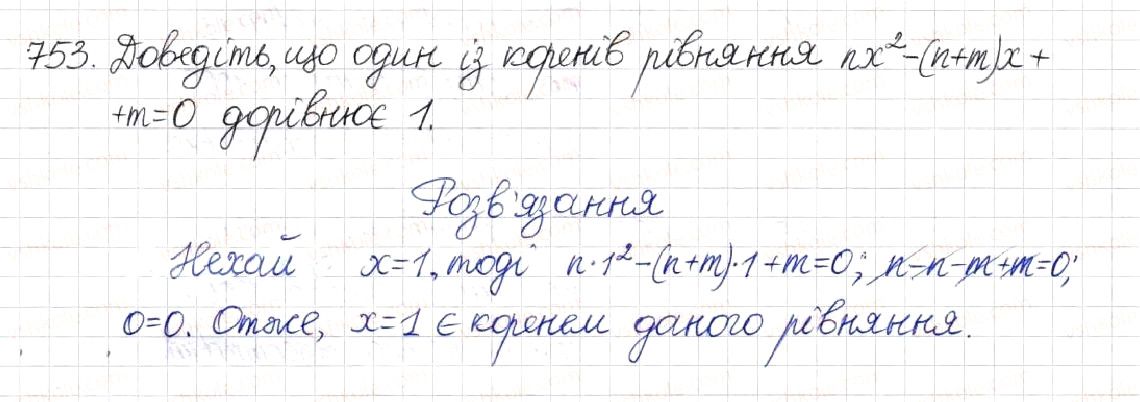 753. Доведіть, що один із коренів рівняння nx²-(n+m)x+
+m=0 дорівнює 1.
Розв'язання
Нехай x=1, тоді n·1²-(n+m)·1+m=0; n-n-m+m=0;
0=0. Отже, x=1 є коренем даного рівняння.